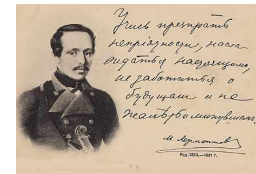 Учись презирать
непріятности, насла-
ждаться настоящимъ,
не заботиться о
будущемъ и не
жалѣть о минувшемъ.
М. Лермонтовъ
Род. 1814.—1841 г.